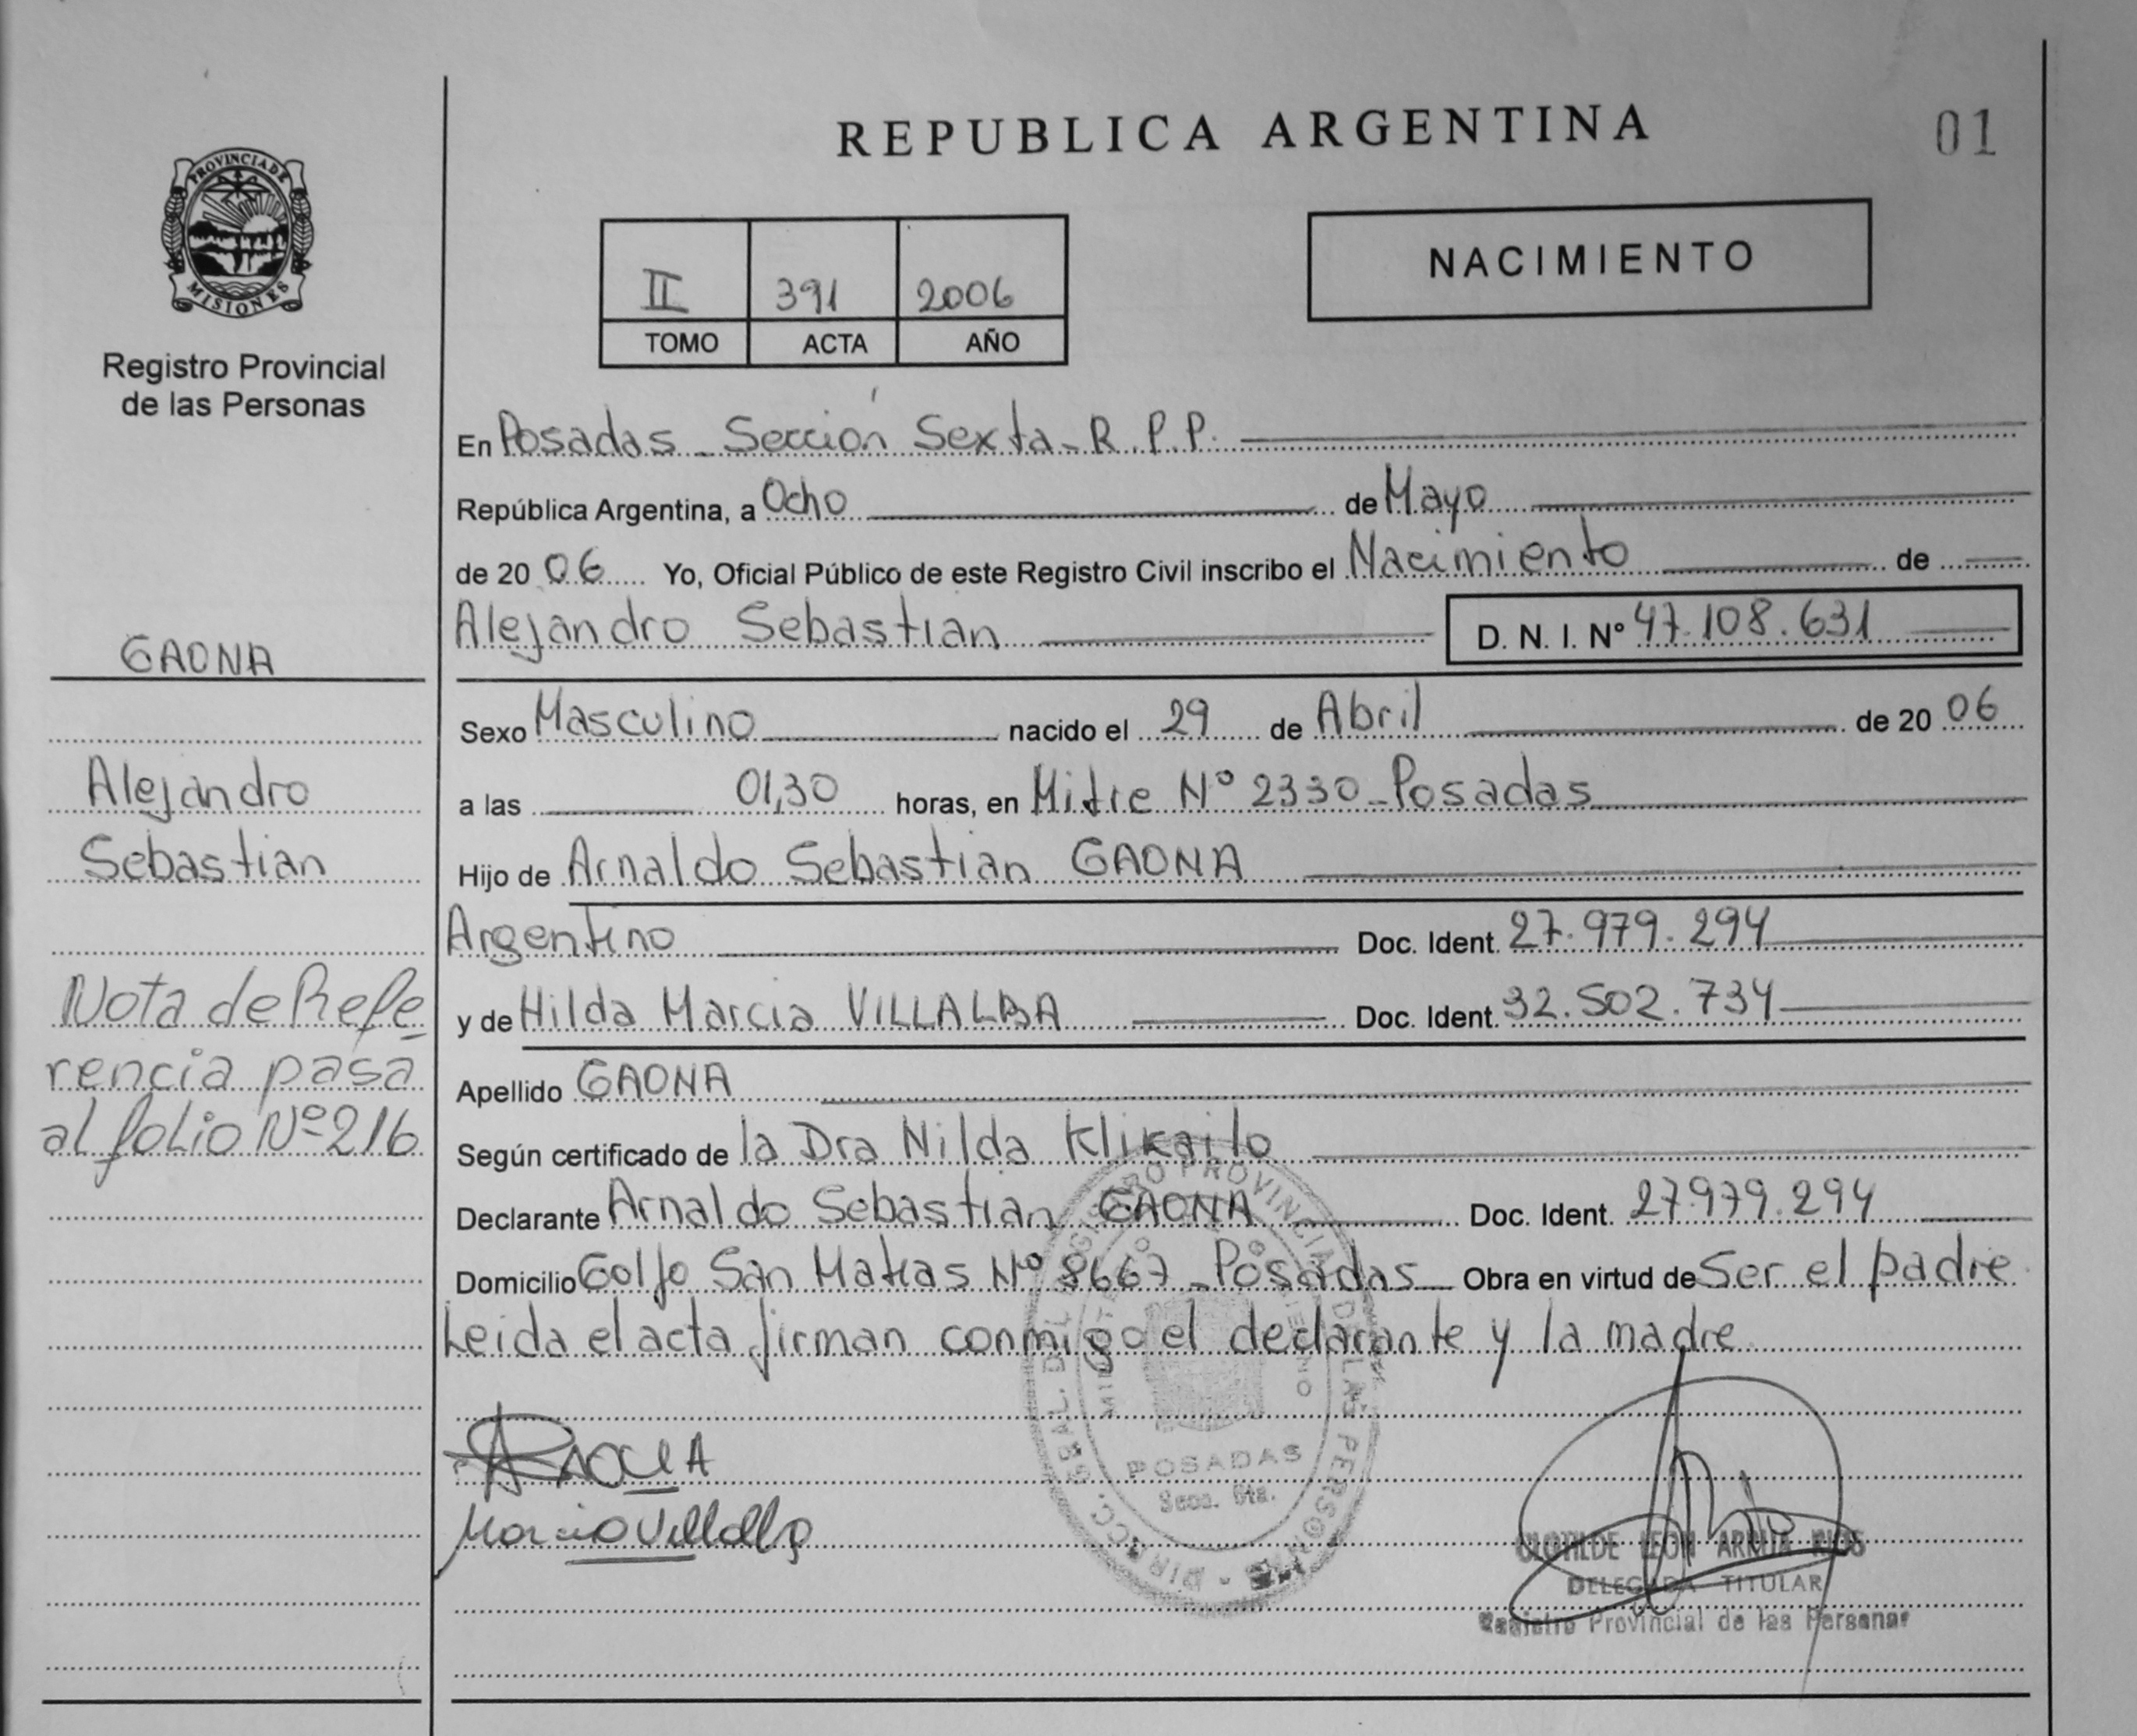 REPUBLICA ARGENTINA
01
PROVINCIA DE
MISIONES
Registro Provincial
de las Personas
II 391 2006
TOMO ACTA AÑO
NACIMIENTO
En Posadas - Sección Sexta - R.P.P.
República Argentina, a Ocho de Mayo
de 2006 Yo, Oficial Público de este Registro Civil inscribo el Nacimiento de
Alejandro Sebastian D. N. I. Nº 47.108.631
Sexo Masculino nacido el 29 de Abril de 2006
a las 01,30 horas, en Mitre Nº 2330 - Posadas
Hijo de Arnaldo Sebastian GAONA
Argentino Doc. Ident. 27.979.294
y de Hilda Marcia VILLALBA Doc. Ident. 32.502.734
Apellido GAONA
Según certificado de la Dra Nilda Klikailo
Declarante Arnaldo Sebastian GAONA Doc. Ident. 27.979.294
Domicilio Golfo San Matias Nº 8667 - Posadas Obra en virtud de Ser el padre
Leida el acta firman conmigo el declarante y la madre
GAONA
Alejandro
Sebastian
Nota de Refe
rencia pasa
al folio Nº 216
Marcia Villalba
POSADAS
Secc. 6ta.
CLOTILDE LEON ARRUA RIOS
DELEGADA TITULAR
Registro Provincial de las Personas